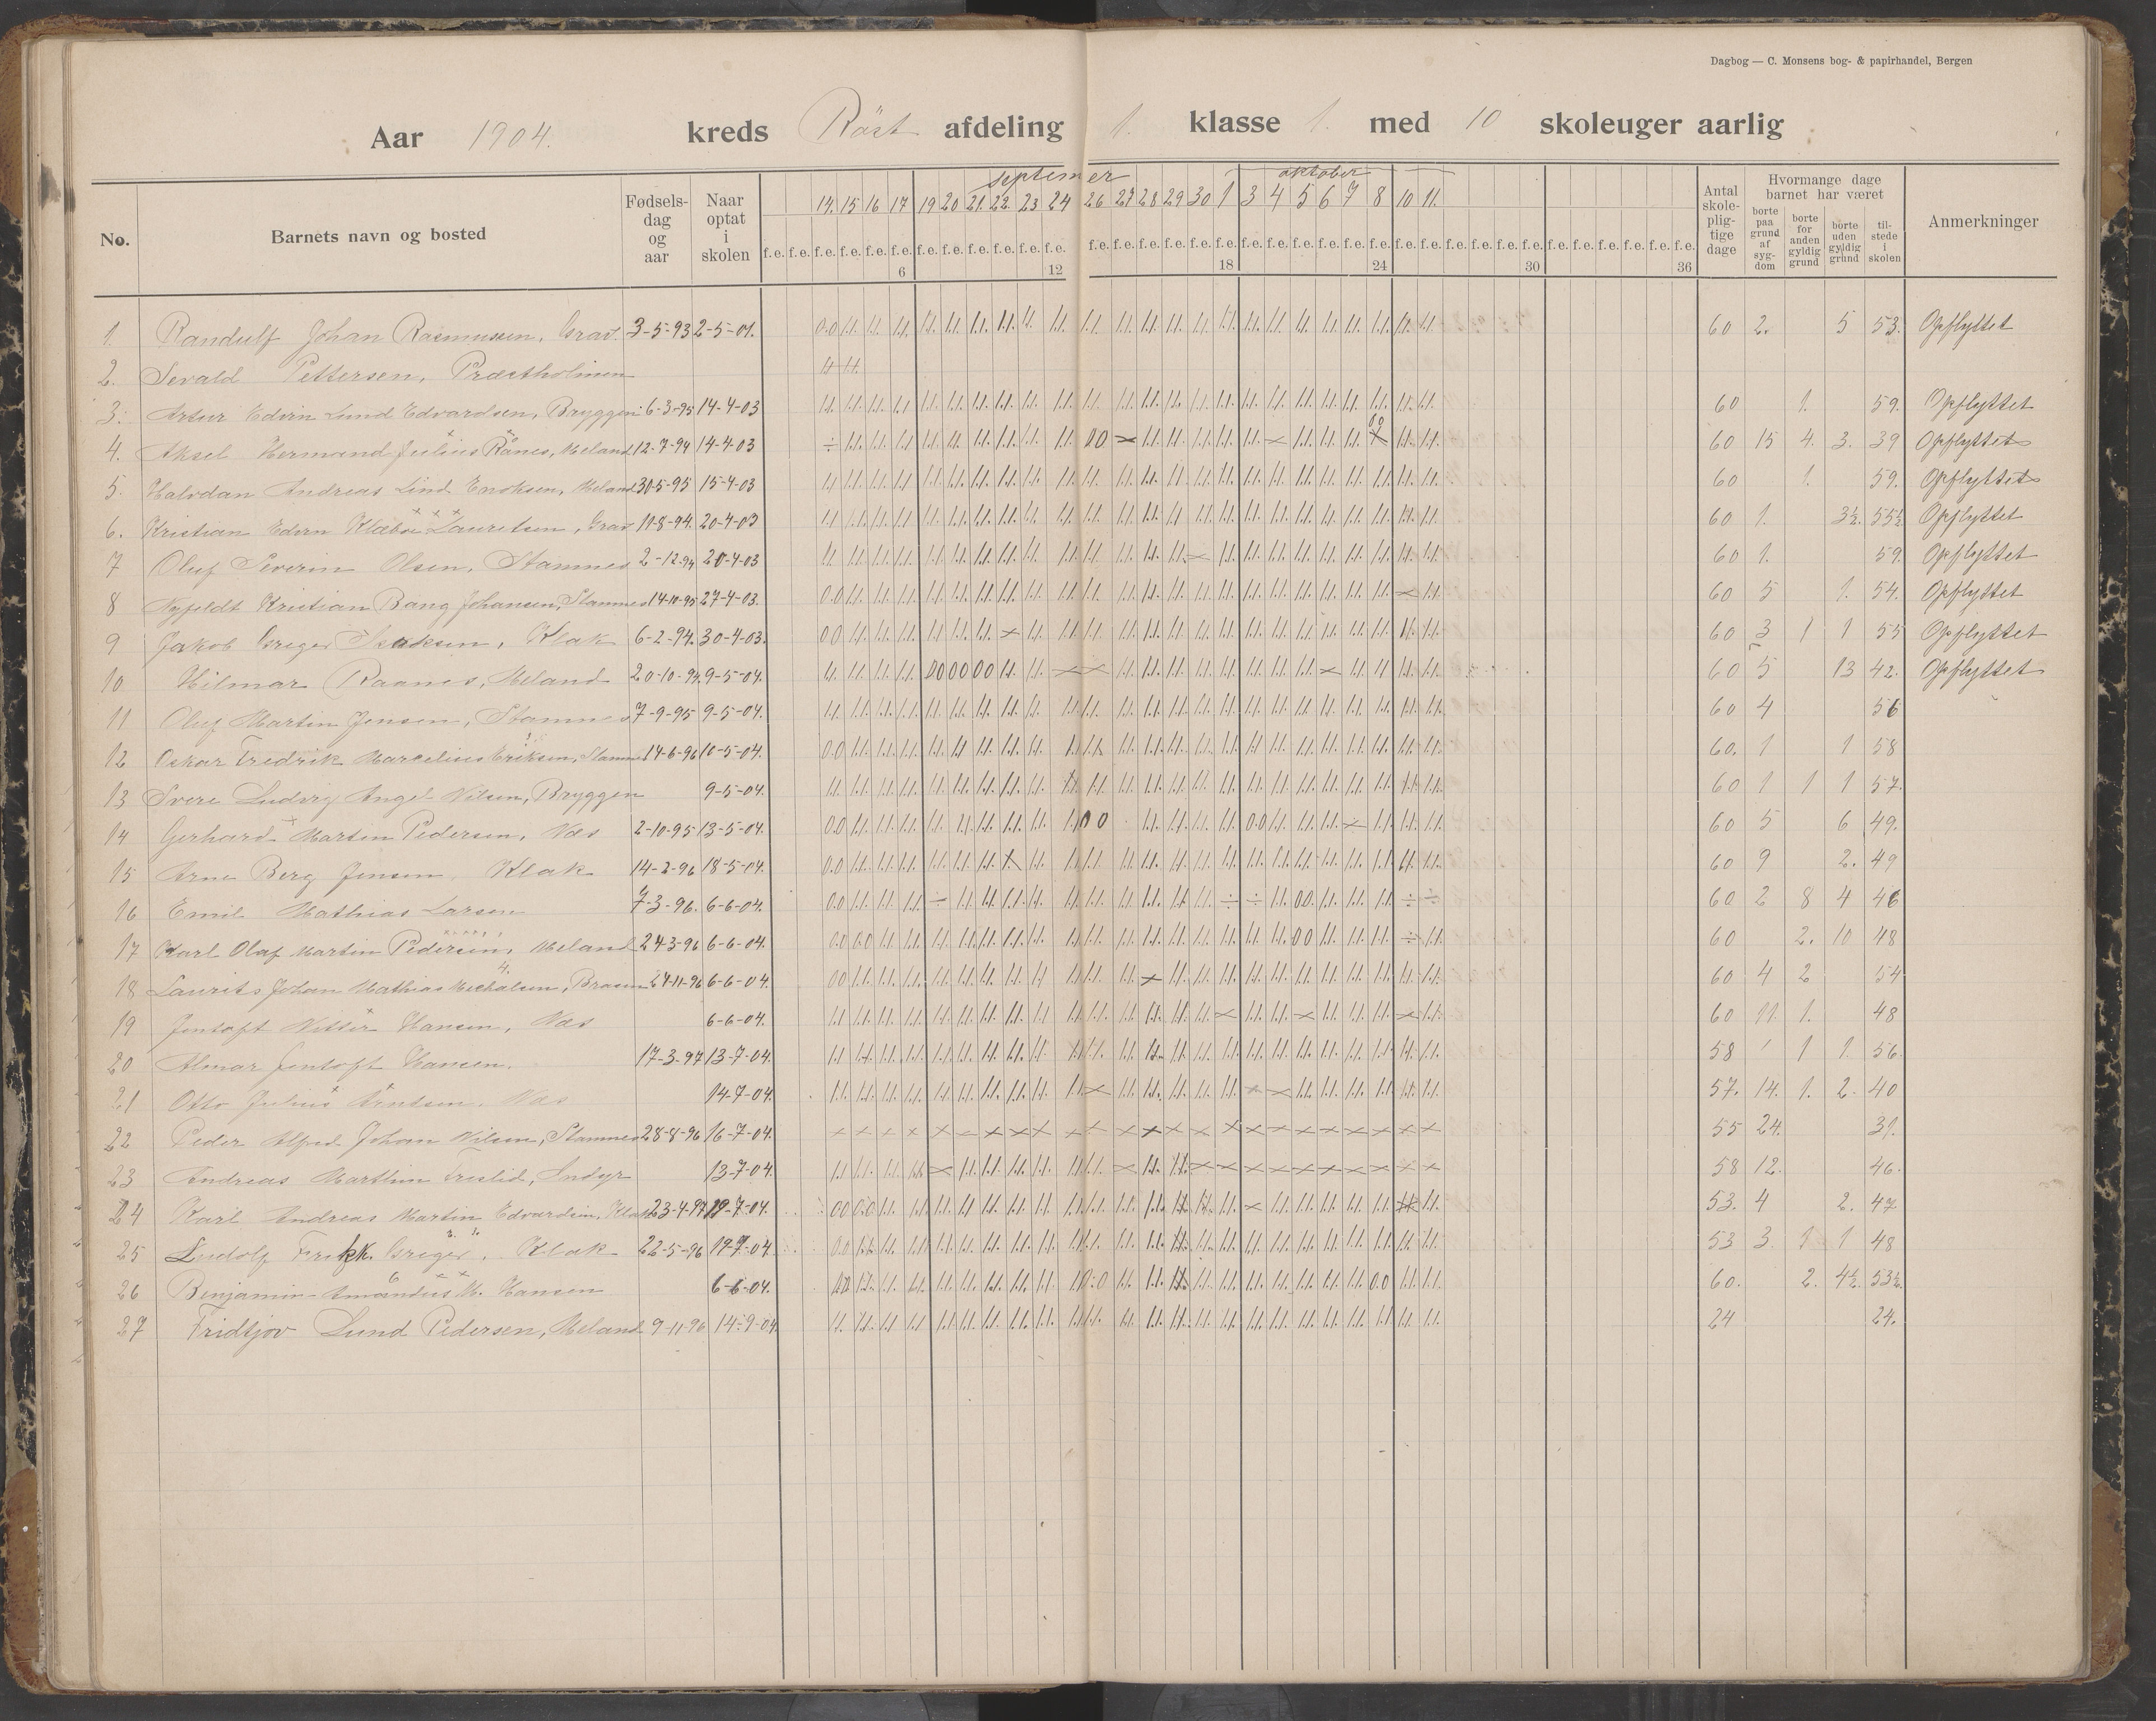 Dagbog — C. Monsens bog- & papirhandel, Bergen
Aar 1904. kreds Röst afdeling 1. klasse 1. med 10 skoleuger aarlig
No. Barnets navn og bosted Fødselsdag og aar Naar optat i skolen Antal skolepligtige dage Hvormange dage barnet har været borte paa grund af sygdom borte for anden gyldig grund borte uden gyldig grund tilstede i skolen Anmerkninger
septemer oktober
14. 15 16 17 19 20 21. 22. 23 24 26 27 28 29 30 1 3 4 5 6 7 8 10 11.
6 12 18 24 30 36
1. Randulf Johan Rasmussen, Grav. 3-5-93 2-5-01. 60 2. 5 53. Opflyttet
2. Sevald Pettersen, Præstholmen
3. Artur Edvin Lund Edvardsen, Bryggen 6-3-95 14-4-03 60 1. 59. Opflyttet
4. Aksel Hermand Julius Rånes, Meland 12-7-94 14-4-03 60 15 4. 3. 39 Opflyttet
5. Halvdan Andreas Lind Enoksen, Meland 30-5-95 15-4-03 60 1. 59. Opflyttet
6. Kristian Edvin Klæbo Lauretsen, Grav 11-8-94. 20-4-03 60 1. 3½. 55½ Opflyttet
7 Oluf Severin Olsen, Stamnes 2-12-94 20-4-03 60 1. 59. Opflyttet
8 Kristian Bang Johansen, Stamnes 14-10-95 27-4-03. 60 5 1. 54. Opflyttet
9 Jakob Greger Isaksen, Klak 6-2-94. 30-4-03. 60 3 1 1 55 Opflyttet
10 Hilmar Raanes, Meland 20-10-94. 9-5-04. 60 5 13 42. Opflyttet
11 Oluf Martin Jensen, Stamnes 7-9-95 9-5-04. 60 4 56
12 Oskar Fredrik Marcelius Eriksen, Stamnes 14-6-96 10-5-04. 60. 1 1 58
13 Svere Ludvig Angel Nilsen, Bryggen 9-5-04. 60 1 1 1 57.
14 Gerhard Martin Pedersen, Næs 2-10-95 13-5-04. 60 5 6 49.
15 Arne Berg Jensen, Klak 14-2-96 18-5-04. 60 9 2. 49
16 Emil Mathias Larsen 7-3-96. 6-6-04. 60 2 8 4 46
17 Karl Olaf Martin Pedersen, Meland 24-3-96 6-6-04. 60 2. 10 48
18 Laurits Johan Mathias Michalsen, 24-11-96 6-6-04. 60 4 2 54
19 Jentoft Hansen, Næs 6-6-04. 60 11. 1. 48
20 Almar Jentoft Hansen. 17-3-97 13-7-04. 58 1 1. 56.
21 Otto Julius Arntsen. Næs 14-7-04. 57. 14. 1. 2. 40
22 Peder Alfred Johan Nilsen, Stamnes 28-8-96 16-7-04. 55 24. 31.
23 Andreas Marthin 13-7-04. 58 12. 46.
24 Karl Andreas Martin Edvardsen, Klak 23-4-97 19-7-04. 53. 4 2. 47
25 Ludolf Greger, Klak 22-5-96 19-7-04. 53 3. 1 1 48
26 Benjamin Amandus M. Hansen 6-6-04. 60. 2. 4½. 53½.
27 Fridtjov Lund Pedersen, Meland 9-11-96 14-9-04. 24 24.